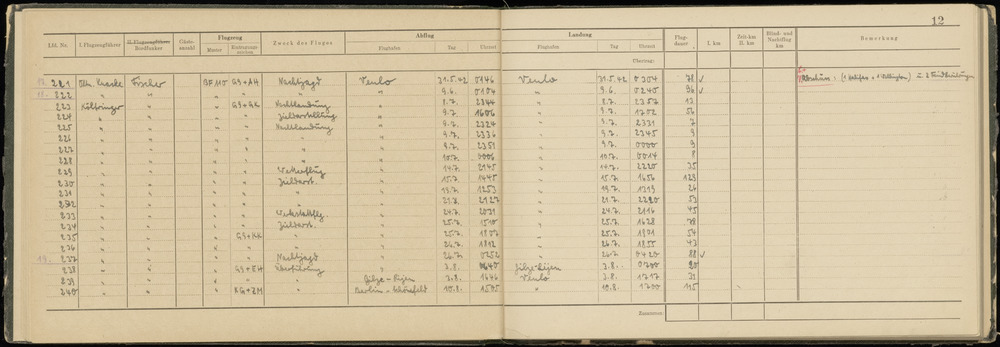 12
Lfd. No. I. Flugzeugführer II. Flugzeugführer Bordfunker Gästeanzahl Flugzeug Muster Zweck des Fluges Abflug Flughafen Tag Uhrzeit Landung Flughafen Tag Uhrzeit Flugdauer I. km Zeit-km II. km Blind- und Nachtflug km Bemerkung
Übertrag:
17. 221 Fischer BF 110 GS+AH Nachtjagd Venlo 31.5.42 0146 Venlo 31.5.42 0304 78 ✓ Abschuss: (1 Halifax + 1 Wellington)
18. 222 " " " " " 9.6. 0104 " 9.6. 0240 96 ✓
223 " " GS+GK Nachtlandung " 8.7. 2344 " 8.7. 2357 13
224 " " " " Zieldarstellung " 9.7. 1606 " 9.7. 1702 56
225 " " " " Nachtlandung " 9.7. 2324 " 9.7. 2331 7
226 " " " " " " 9.7. 2336 " 9.7. 2345 9
227 " " " " " " 9.7. 2351 " 9.7. 0000 9
228 " " " " " " 10.7. 0006 " 10.7. 0014 8
229 " " " " " 14.7. 2145 " 14.7. 2220 35
230 " " " " Zieldarst. " 15.7. 1445 " 15.7. 1656
231 " " " " " " 19.7. 1253 " 19.7. 1319 26
232 " " " " " " 21.7. 2127 " 21.7. 2220 53
233 " " " " Werkstattflg. " 24.7. 2031 " 24.7. 2116 45
234 " " " " Zieldarst. " 25.7. 1510 " 25.7. 1628 78
235 " " GS+KK " " 25.7. 1807 " 25.7. 1901 54
236 " " " " " " 26.7. 1812 " 26.7. 1855 43
19. 237 " " " " Nachtjagd " 26.7. 0252 " 26.7. 0420 88 ✓
238 " " " Überführung " 3.8. 0640 Gilze-Rijen 3.8. 0700 20
239 " " " " " Gilze-Rijen 3.8. 1646 Venlo 3.8. 1717 31
240 " " " KG+ZM " Berlin-Schönefeld 10.8. 1505 " 10.8. 1700 115
Zusammen: